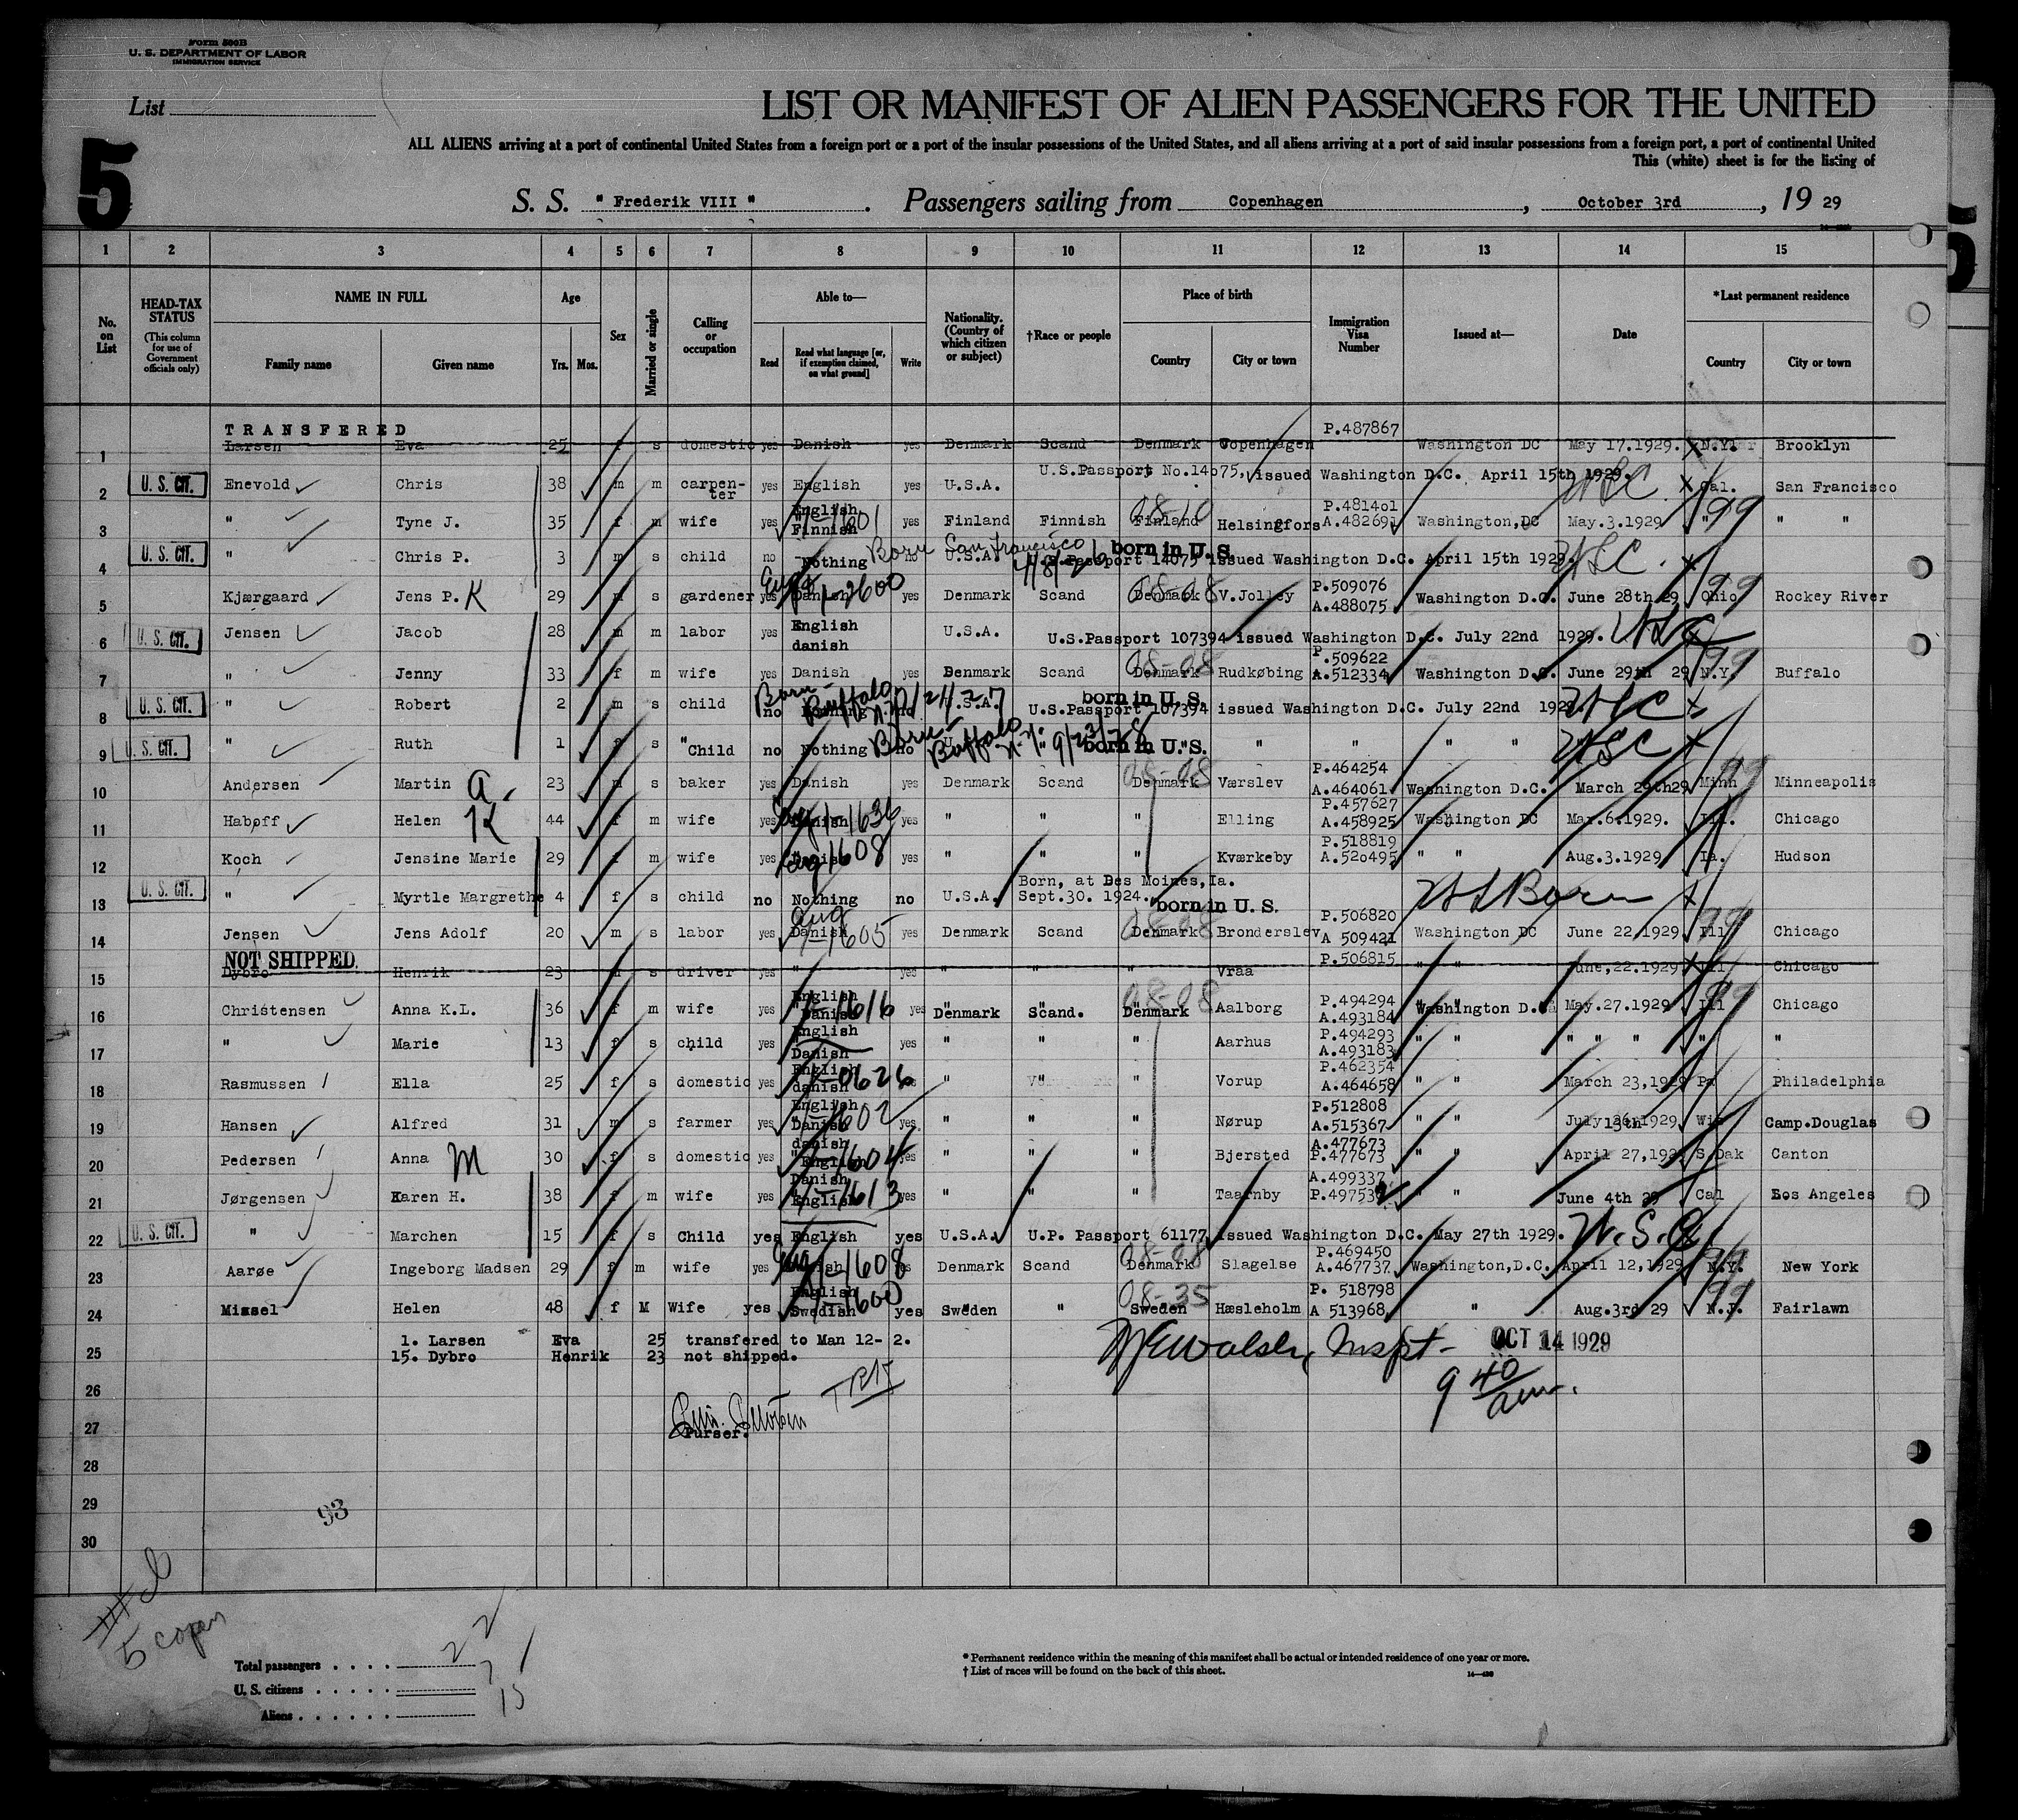 Form 500B
U. S. DEPARTMENT OF LABOR
IMMIGRATION SERVICE
List
LIST OR MANIFEST OF ALIEN PASSENGERS FOR THE UNITED
ALL ALIENS arriving at a port of continental United States from a foreign port or a port of the insular possessions of the United States, and all aliens arriving at a port of said insular possessions from a foreign port, a port of continental United
This (white) sheet is for the listing of
5
S. S. " Frederik VIII " . Passengers sailing from Copenhagen , October 3rd , 19 29
1 2 3 4 5 6 7 8 9 10 11 12 13 14 15
No. on List
HEAD-TAX STATUS
(This column for use of Government officials only)
NAME IN FULL
Family name Given name
Age
Yrs. Mos.
Sex
Married or single
Calling or occupation
Able to—
Read
Read what language [or, if exemption claimed, on what ground]
Write
Nationality. (Country of which citizen or subject)
†Race or people
Place of birth
Country City or town
Immigration Visa Number
Issued at—
Date
*Last permanent residence
Country City or town
TRANSFERED P.487867
1 Larsen Eva 25 f s domestic yes Danish yes Denmark Scand Denmark Copenhagen Washington DC May 17.1929. N.Y. Brooklyn
U.S.Passport No.14075, issued Washington D.C. April 15th 1929.
2 U. S. CIT. Enevold Chris 38 m m carpen-ter yes English yes U.S.A. Cal. San Francisco
3 " Tyne J. 35 f m wife yes English Finnish yes Finland Finnish 08-10 Finland Helsingfors P.481401 A.482691 Washington,DC May.3.1929 " 99 " "
4 U. S. CIT. " Chris P. 3 m s child no Nothing no U.S.A. Born San Francisco born in U. S. U.S.Passport 14075 issued Washington D.C. April 15th 1929.
5 Kjærgaard Jens P. K 29 m s gardener yes Danish yes Denmark Scand 08-08 Denmark V.Jolley P.509076 A.488075 Washington D.C. June 28th 29 Ohio 99 Rockey River
6 U. S. CIT. Jensen Jacob 28 m m labor yes English danish U.S.A. U.S.Passport 107394 issued Washington D.C. July 22nd 1929.
7 " Jenny 33 f m wife yes Danish yes Denmark Scand 08-08 Denmark Rudkøbing P.509622 A.512334 Washington D.C. June 29th 29 N.Y. 99 Buffalo
8 U. S. CIT. " Robert 2 m s child no Nothing no U.S.A. Born Buffalo N.Y. born in U. S. U.S.Passport 107394 issued Washington D.C. July 22nd 1929.
9 U. S. CIT. " Ruth 1 f s "Child no Nothing no Born Buffalo N.Y. born in U. S. " " " "
10 Andersen Martin A. 23 m s baker yes Danish yes Denmark Scand 08-08 Denmark Værslev P.464254 A.464061 Washington D.C. March 29th29 Minn 99 Minneapolis
11 Habøff Helen K 44 f m wife yes Danish yes " " " Elling P.457627 A.458925 Washington DC Mar.6.1929. Ill. Chicago
12 Koch Jensine Marie 29 f m wife yes yes " " " Kværkeby P.518819 A.520495 " " Aug.3.1929 Ia. Hudson
13 U. S. CIT. " Myrtle Margrethe 4 f s child no Nothing no U.S.A. Born, at Des Moines,Ia. Sept.30. 1924. born in U. S. US Born
14 Jensen Jens Adolf 20 m s labor yes Danish yes Denmark Scand 08-08 Denmark Bronderslev P.506820 A 509421 Washington DC June 22,1929 Ill 99 Chicago
NOT SHIPPED.
15 Dybro Henrik 23 m s driver yes " yes " " " Vraa P.506815 " " June,22.1929 Ill Chicago
16 Christensen Anna K.L. 36 f m wife yes English Danish yes Denmark Scand. 08-08 Denmark Aalborg P.494294 A.493184 Washington D.C. May.27.1929 Ill 99 Chicago
17 " Marie 13 f s child yes English Danish yes " " " Aarhus P.494293 A.493183 " " " " " " "
18 Rasmussen Ella 25 f s domestic yes English danish " " Vorup P.462354 A.464658 " " March 23,1929 Pa Philadelphia
19 Hansen Alfred 31 m s farmer yes English Danish yes " " " Nørup P.512808 A.515367 " " July 13th 1929 Wis Camp.Douglas
20 Pedersen Anna M 30 f s domestic yes danish English yes " " " Bjersted A.477673 P.477673 " " April 27,1929 S.Dak Canton
21 Jørgensen Karen H. 38 f m wife yes Danish English yes " " " Taarnby A.499337 P.497539 " " June 4th 29 Cal Los Angeles
22 U. S. CIT. " Marchen 15 f s Child yes English yes U.S.A. U.P. Passport 61177 issued Washington D.C. May 27th 1929. U.S.C.
23 Aarøe Ingeborg Madsen 29 f m wife yes Denmark Scand 08-08 Denmark Slagelse P.469450 A.467737 Washington,D.C. April 12,1929 N.Y. 99 New York
24 Missel Helen 48 f M Wife yes English Swedish yes Sweden " 08-35 Sweden Hæsleholm P. 518798 A 513968 " Aug.3rd 29 N.J. 99 Fairlawn
1. Larsen Eva 25 transfered to Man 12- 2.
25 15. Dybro Henrik 23 not shipped.
Walsh, Inspt- OCT 14 1929
9 40 am.
26
27 Purser.
28
29
30
93
5 copen
Total passengers . . . . 22
U. S. citizens . . . . . 7
Aliens . . . . . . 15
* Permanent residence within the meaning of this manifest shall be actual or intended residence of one year or more.
† List of races will be found on the back of this sheet.